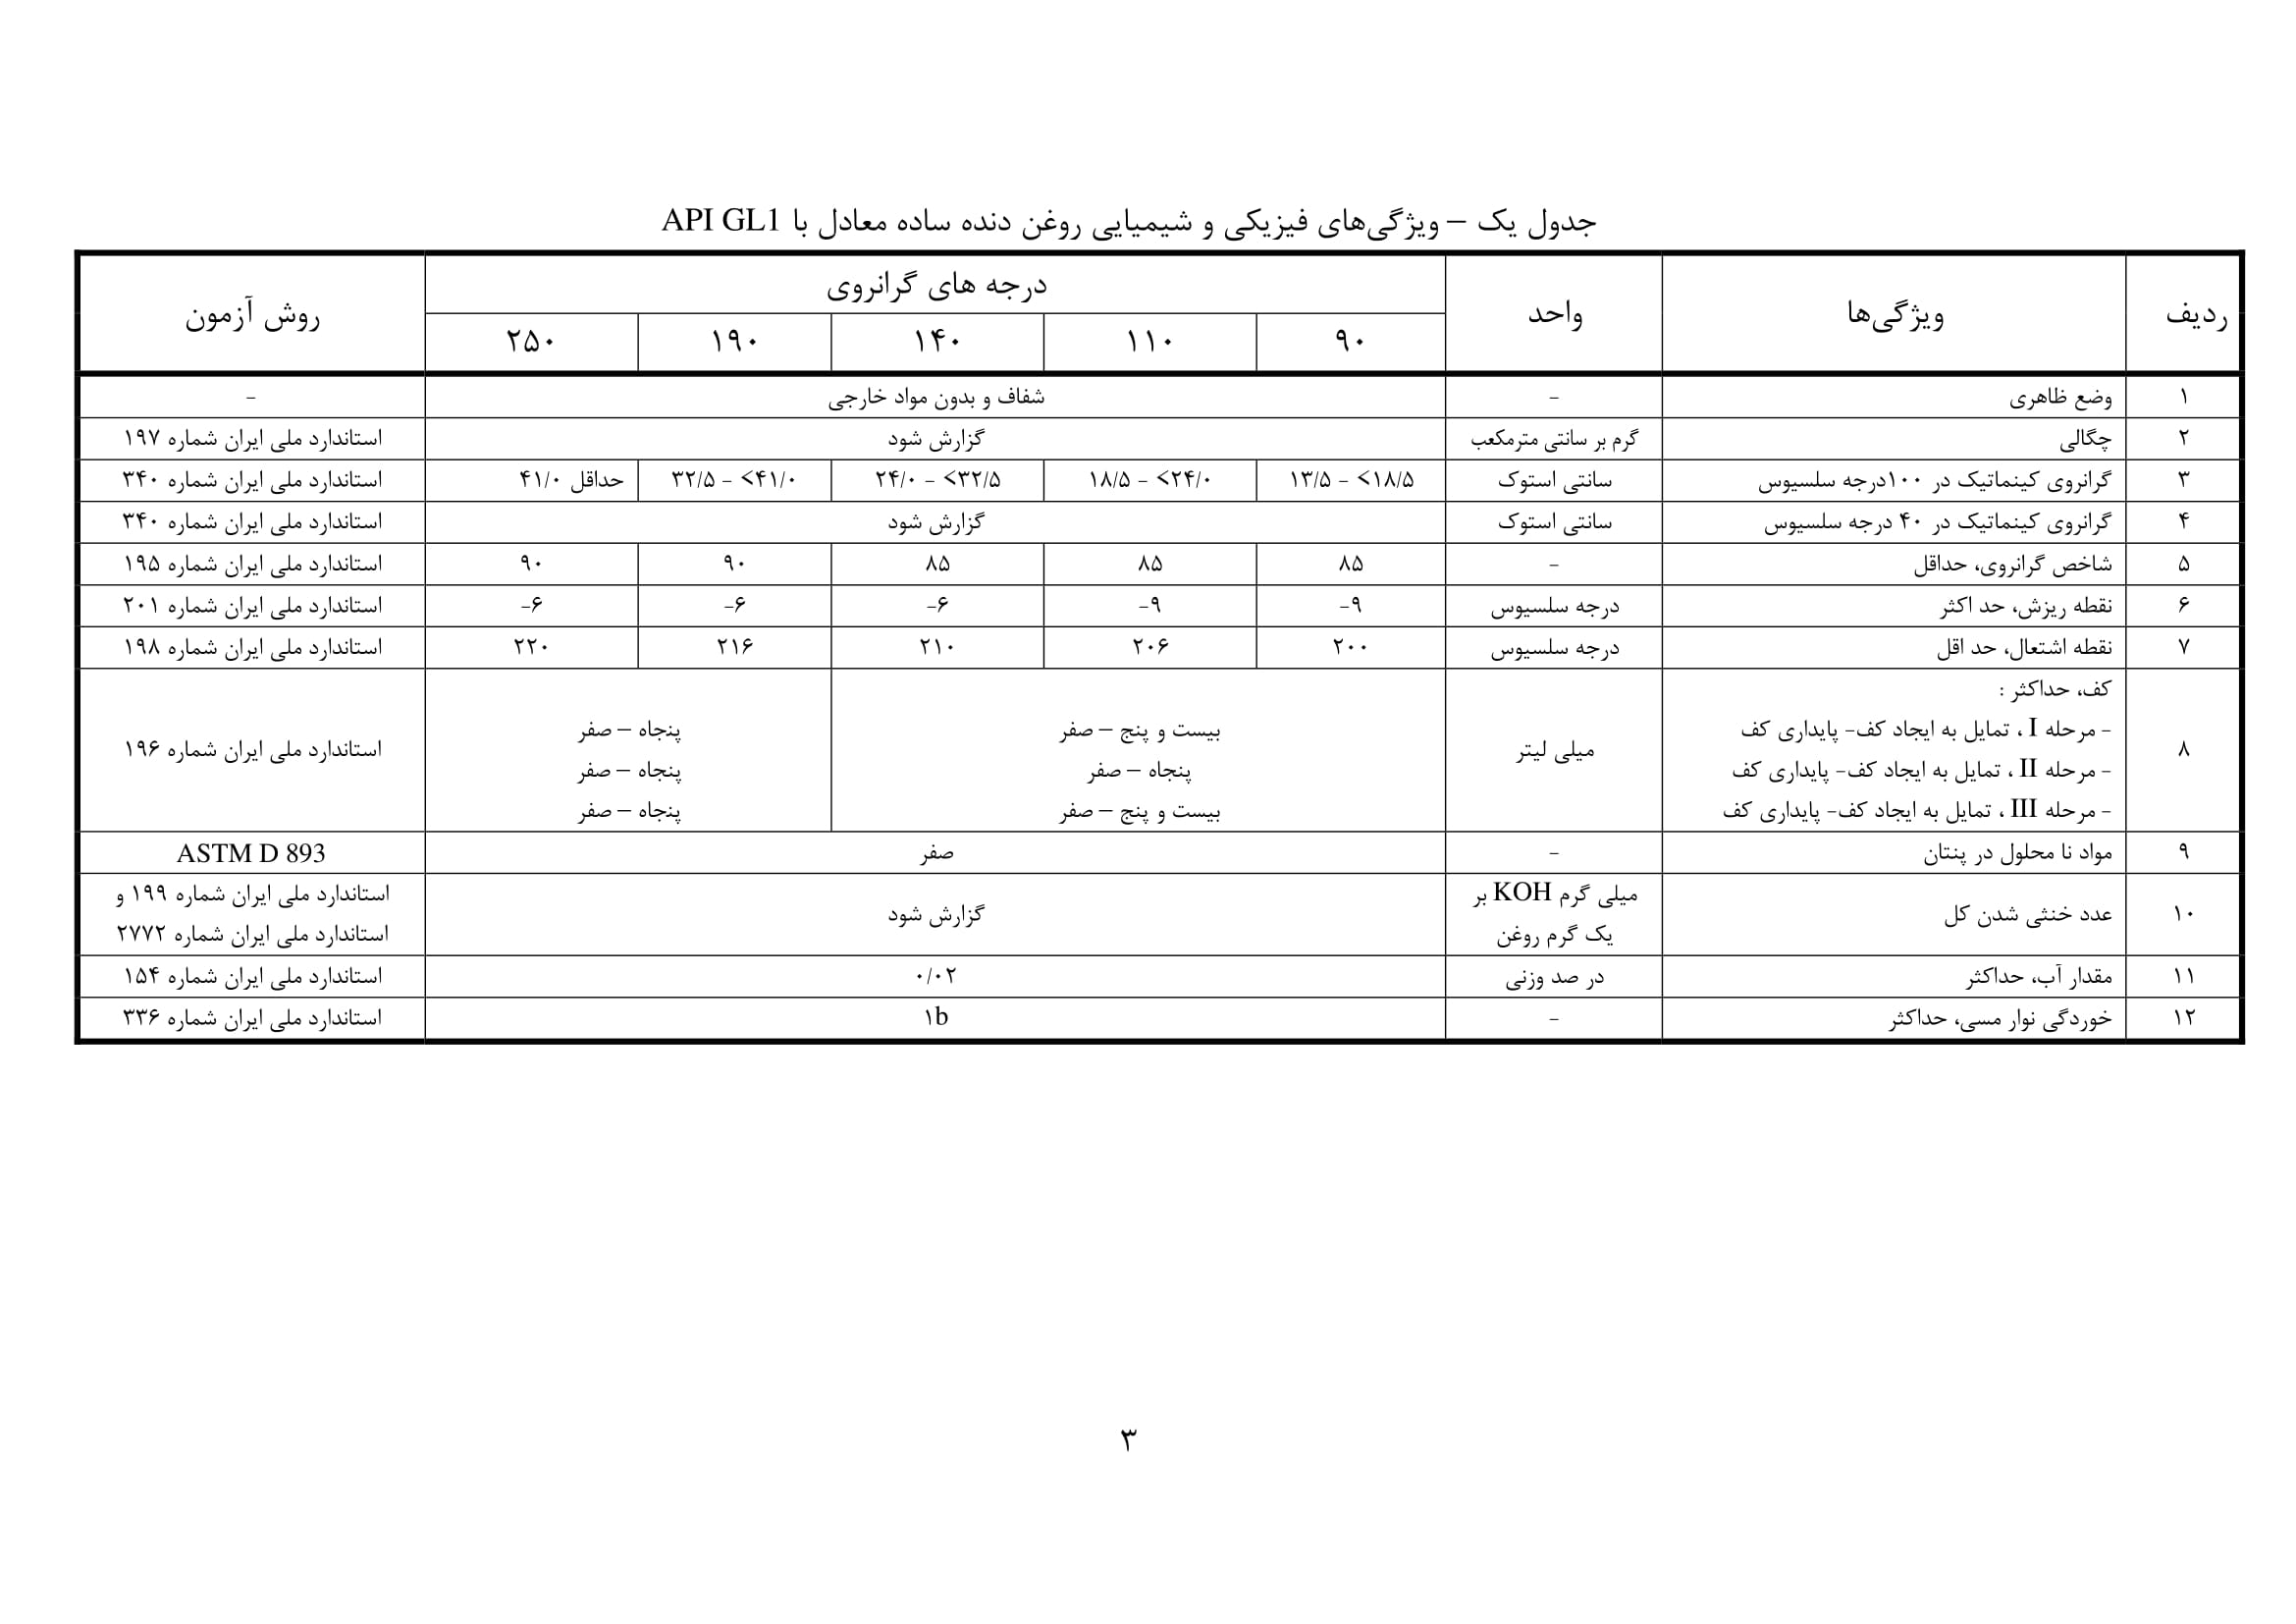 جدول یک – ویژگی‌های فیزیکی و شیمیایی روغن دنده ساده معادل با API GL1
ردیف ویژگی‌ها واحد درجه های گرانروی روش آزمون
۹۰ ۱۱۰ ۱۴۰ ۱۹۰ ۲۵۰
۱ وضع ظاهری - شفاف و بدون مواد خارجی -
۲ چگالی گرم بر سانتی مترمکعب گزارش شود استاندارد ملی ایران شماره ۱۹۷
۳ گرانروی کینماتیک در ۱۰۰درجه سلسیوس سانتی استوک ۱۳/۵ - <۱۸/۵ ۱۸/۵ - <۲۴/۰ ۲۴/۰ - <۳۲/۵ ۳۲/۵ - <۴۱/۰ حداقل ۴۱/۰ استاندارد ملی ایران شماره ۳۴۰
۴ گرانروی کینماتیک در ۴۰ درجه سلسیوس سانتی استوک گزارش شود استاندارد ملی ایران شماره ۳۴۰
۵ شاخص گرانروی، حداقل - ۸۵ ۸۵ ۸۵ ۹۰ ۹۰ استاندارد ملی ایران شماره ۱۹۵
۶ نقطه ریزش، حد اکثر درجه سلسیوس -۹ -۹ -۶ -۶ -۶ استاندارد ملی ایران شماره ۲۰۱
۷ نقطه اشتعال، حد اقل درجه سلسیوس ۲۰۰ ۲۰۶ ۲۱۰ ۲۱۶ ۲۲۰ استاندارد ملی ایران شماره ۱۹۸
۸ کف، حداکثر : میلی لیتر استاندارد ملی ایران شماره ۱۹۶
- مرحله I ، تمایل به ایجاد کف- پایداری کف بیست و پنج – صفر پنجاه – صفر
- مرحله II ، تمایل به ایجاد کف- پایداری کف پنجاه – صفر پنجاه – صفر
- مرحله III ، تمایل به ایجاد کف- پایداری کف بیست و پنج – صفر پنجاه – صفر
۹ مواد نا محلول در پنتان - صفر ASTM D 893
۱۰ عدد خنثی شدن کل میلی گرم KOH بر گزارش شود استاندارد ملی ایران شماره ۱۹۹ و
یک گرم روغن استاندارد ملی ایران شماره ۲۷۷۲
۱۱ مقدار آب، حداکثر در صد وزنی ۰/۰۲ استاندارد ملی ایران شماره ۱۵۴
۱۲ خوردگی نوار مسی، حداکثر - ۱b استاندارد ملی ایران شماره ۳۳۶
۳